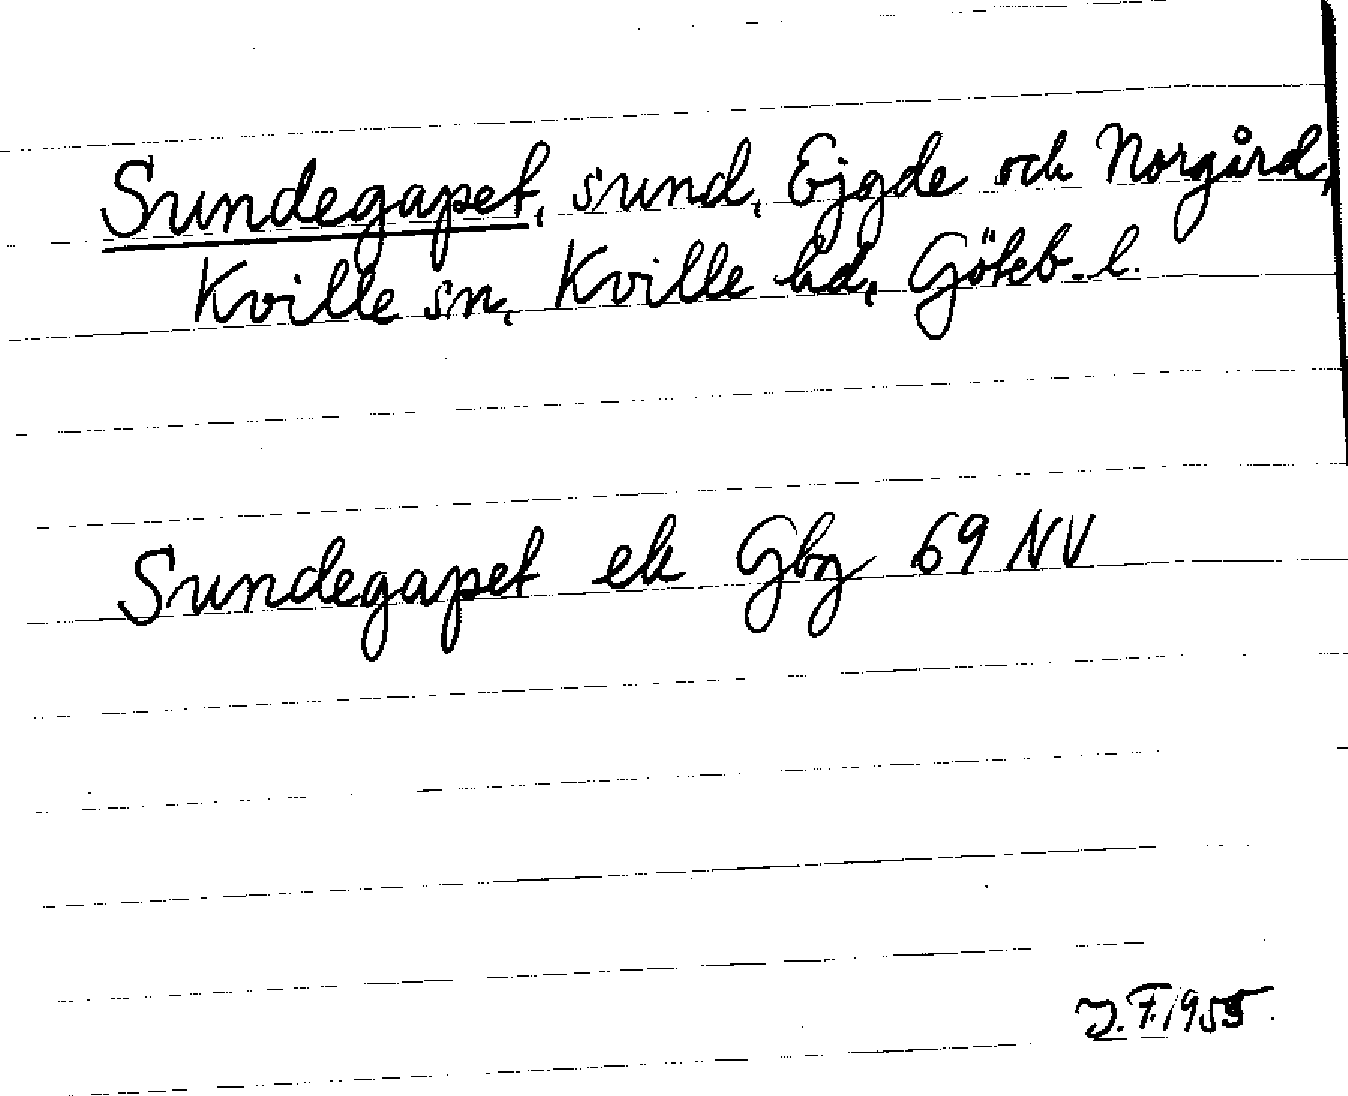 Sundegapet, sund, Ejgde och Norgård,
Kville sn, Kville hd, Göteb. l.
Sundegapet ek Gbg 69 NV
J.F. 1955.